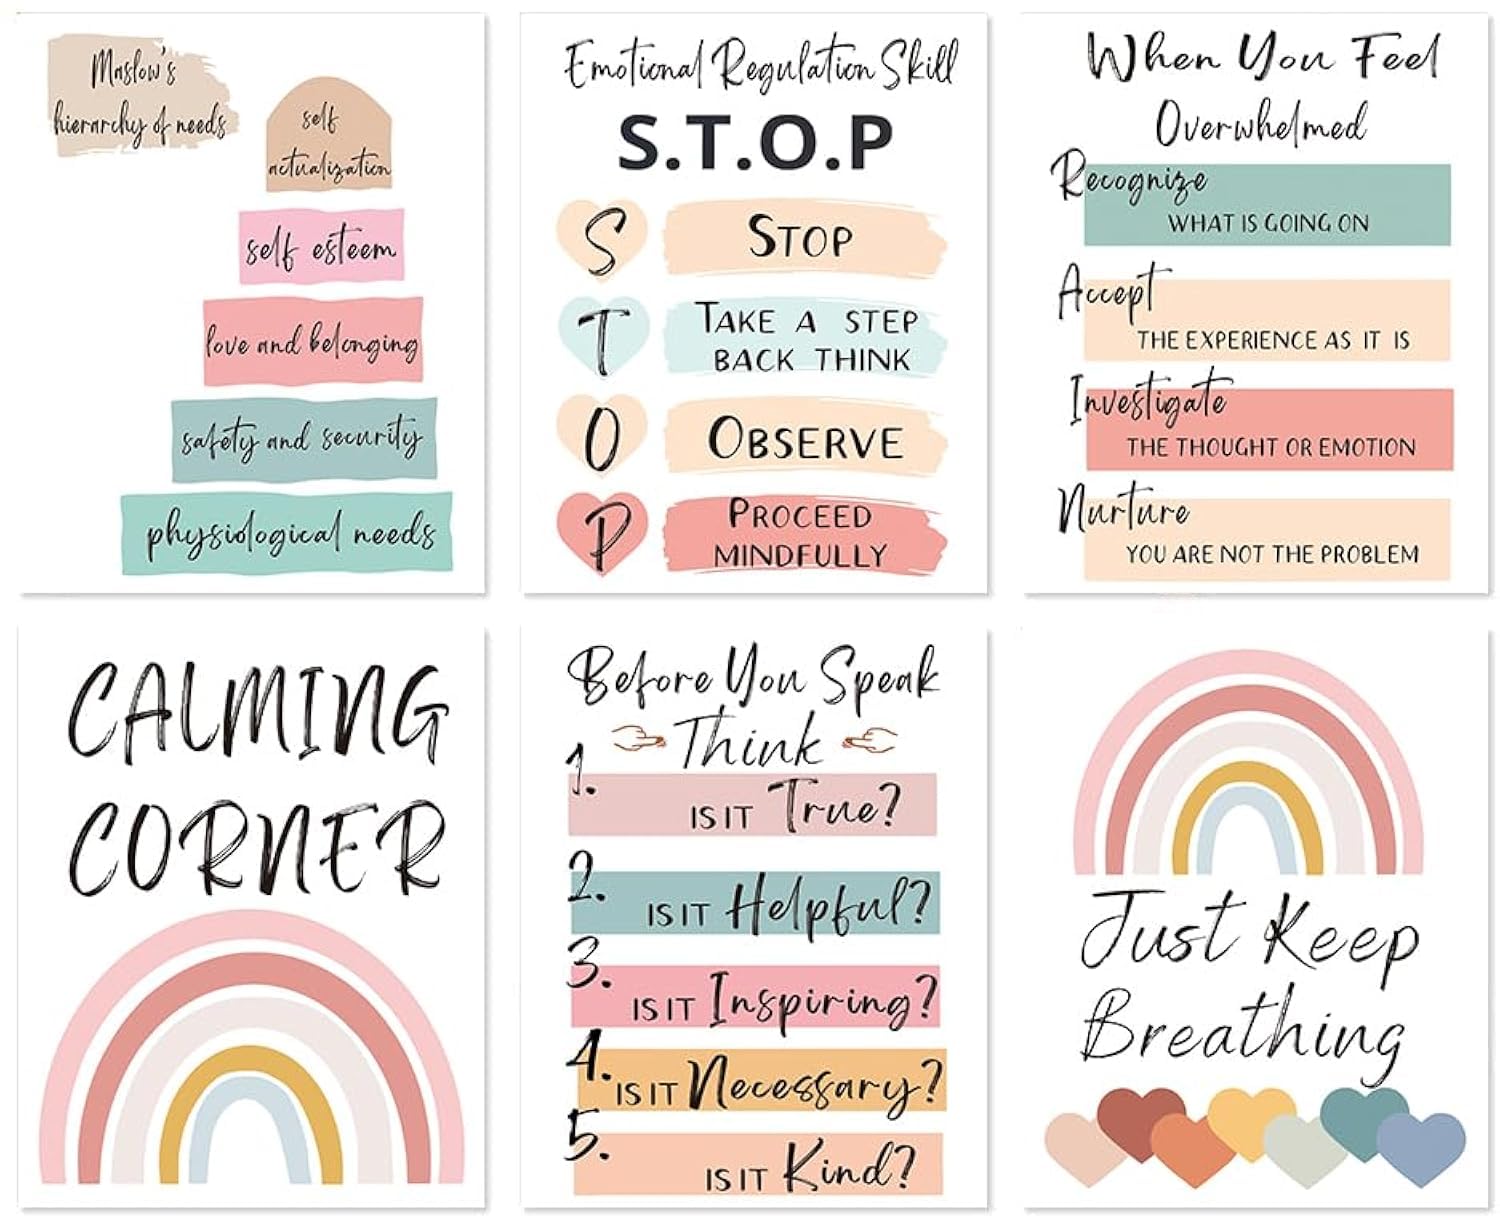 Maslow's
hierarchy of needs
self
actualization
self esteem
love and belonging
safety and security
physiological needs
Emotional Regulation Skill
S.T.O.P
S STOP
T TAKE A STEP
BACK THINK
O OBSERVE
P PROCEED
MINDFULLY
When You Feel
Overwhelmed
Recognize
WHAT IS GOING ON
Accept
THE EXPERIENCE AS IT IS
Investigate
THE THOUGHT OR EMOTION
Nurture
YOU ARE NOT THE PROBLEM
CALMING
CORNER
Before You Speak
Think
1. IS IT True?
2. IS IT Helpful?
3. IS IT Inspiring?
4. IS IT Necessary?
5. IS IT Kind?
Just Keep
Breathing